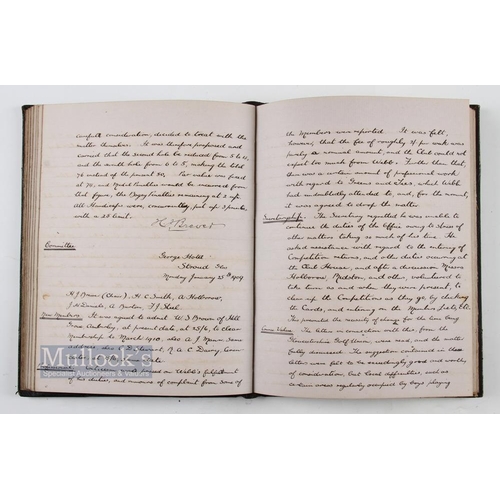 careful consideration, decided to treat with the
matter themselves. It was therefore proposed and
carried that the second hole be reduced from 5 to 4,
and the ninth hole from 6 to 5, making the total
76 instead of the present 80. Par value was fixed
at 76, and Medal Handicaps would be reckoned from
that figure, the Bogey Handicaps remaining at 2 up.
All Handicaps were, consequently, put up
with a 28 limit.
Committee
George Hotel
Stroud Glos
Monday January 25th 1909
(Chair), H. C. Smith, A Holbrow,
New Members It was agreed to admit W. J. Brown of Hill
at present date, at 25/6, to clear
Membership to March 1910, also A J
address
Mullock's
Specialist Auctioneers & Valuers
on Webb's fulfilment
of his duties, and amount of complaint from some of
the Members was reported. It was felt,
however, that the fee of roughly 1/- pr. week was
purely a nominal amount, and the Club could not
expect too much from Webb. Further than that,
there was a certain amount of professional work
with regard to Greens and Tees, which Webb
had undoubtedly attended to, and, for the moment,
it was agreed to drop the matter.
Secretaryship. The Secretary regretted he was unable to
continue the duties of the Office owing to stress of
other matters taking so much of his time. He
asked assistance with regard to the entering of
Competition returns, and other duties occurring at
the Club House, and after a discussion Messrs
Holbrow, Medston, and others, volunteered to
take turns as and when they were present, to
clear up the Competitions as they go, by checking
the Cards, and entering on the Members lists, Etc.
This prevented the necessity of change for this year being
The letter in connection with this from the
Gloucestershire Golf Union, was read, and the matter
fully discussed. The suggestion contained in these
letters was felt to be exceedingly good and worthy
of consideration, but local difficulties, such as
certain areas regularly occupied by boys playing